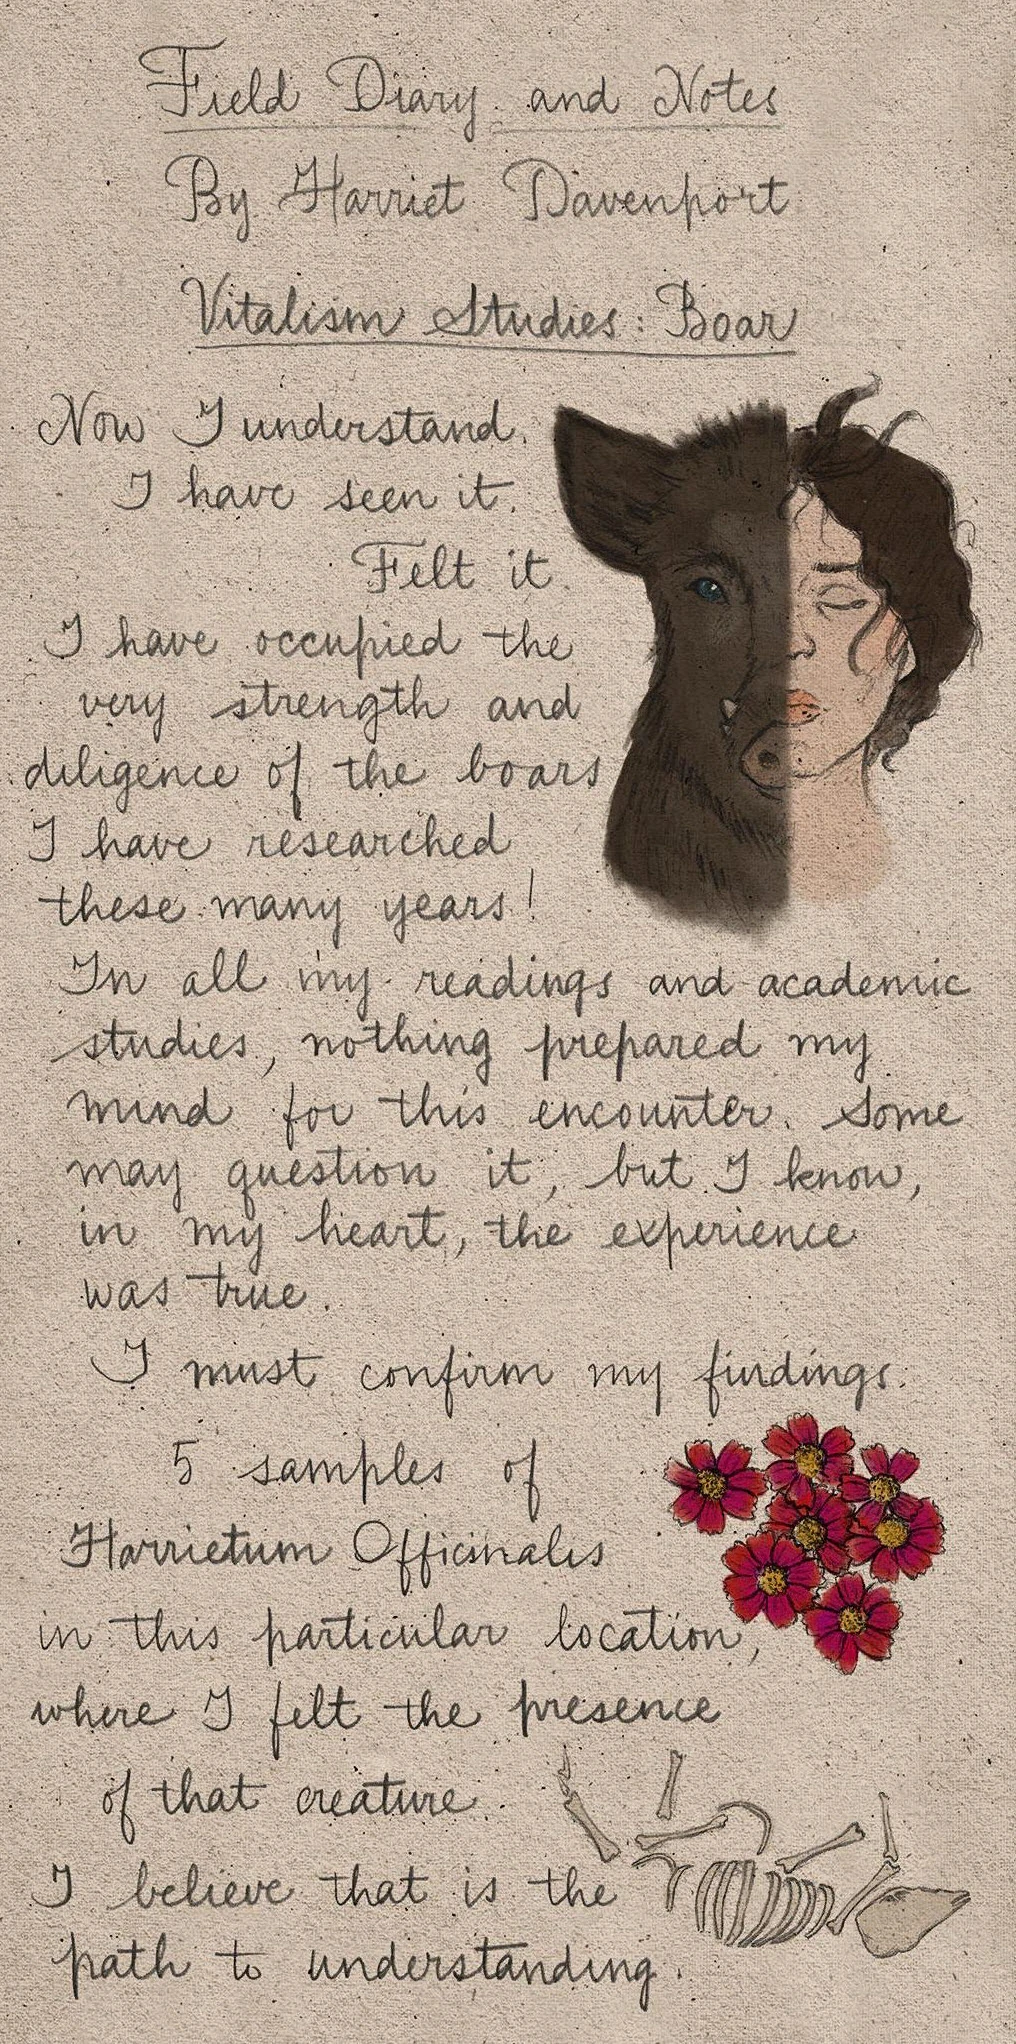 Field Diary and Notes
By Harriet Davenport
Vitalism Studies: Boar
Now I understand.
I have seen it.
Felt it.
I have occupied the
very strength and
diligence of the boars
I have researched
these many years!
In all my readings and academic
studies, nothing prepared my
mind for this encounter. Some
may question it, but I know,
in my heart, the experience
was true.
I must confirm my findings.
5 samples of
Harrietum Officinalis
in this particular location,
where I felt the presence
of that creature.
I believe that is the
path to understanding.